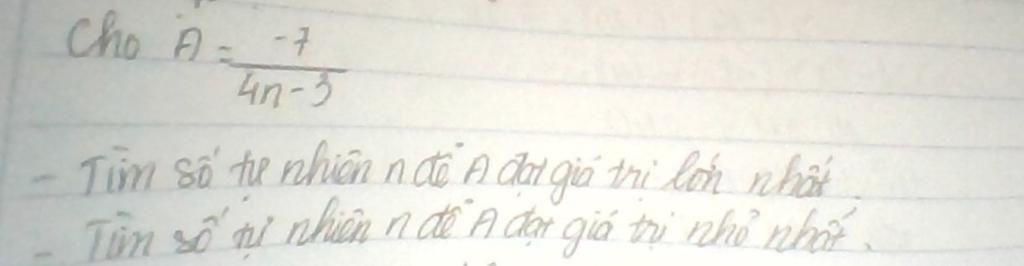 Cho A = -7
4n-3
- Tìm số tự nhiên n để A đạt giá trị lớn nhất.
- Tìm số tự nhiên n để A đạt giá trị nhỏ nhất.